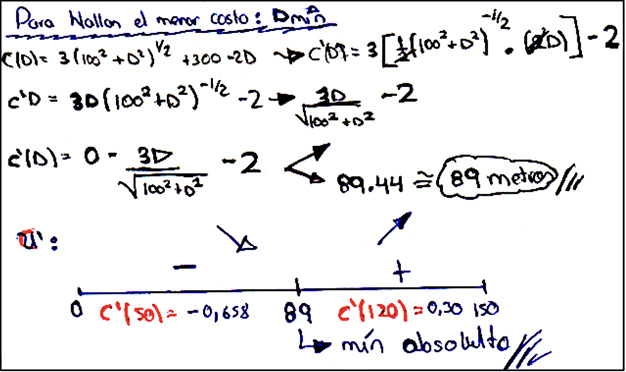 Para Hallar el menor costo: Dmín
C(D) = 3(100² + D²)^1/2 + 300 - 2D → C'(D) = 3[1/2(100² + D²)^-1/2 · (2D)] - 2
C'D = 3D(100² + D²)^-1/2 - 2 → 3D/√100² + D² - 2
C'(D) = 0 - 3D/√100² + D² - 2 89.44 ≅ 89 metros
:
- +
0 C'(50) = -0,658 89 C'(120) = 0,30 150
↳ mín absoluto